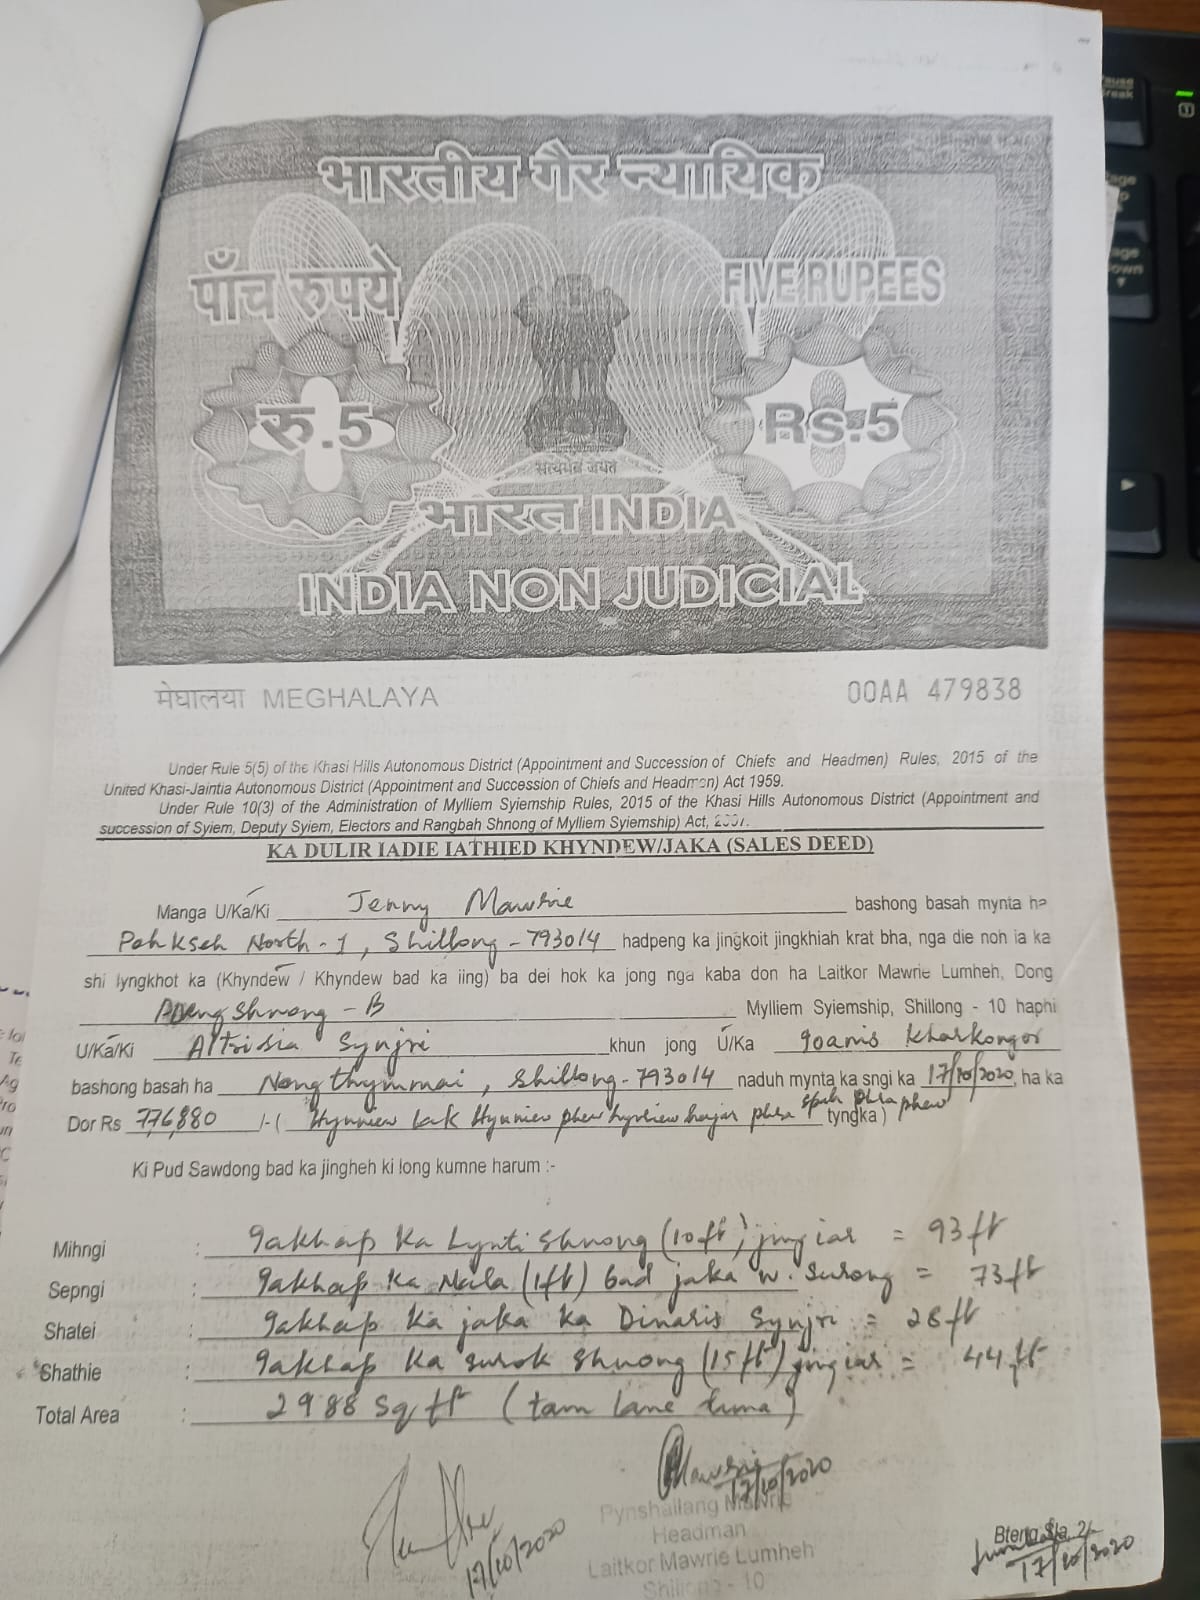 भारतीय गैर न्यायिक
पाँच रुपये
FIVE RUPEES
रु.5
Rs.5
सत्यमेव जयते
भारत INDIA
INDIA NON JUDICIAL
मेघालया MEGHALAYA
00AA 479838
Under Rule 5(5) of the Khasi Hills Autonomous District (Appointment and Succession of Chiefs and Headmen) Rules, 2015 of the
United Khasi-Jaintia Autonomous District (Appointment and Succession of Chiefs and Headmen) Act 1959.
Under Rule 10(3) of the Administration of Mylliem Syiemship Rules, 2015 of the Khasi Hills Autonomous District (Appointment and
succession of Syiem, Deputy Syiem, Electors and Rangbah Shnong of Mylliem Syiemship) Act, 2007.
KA DULIR IADIE IATHIED KHYNDEW/JAKA (SALES DEED)
Manga U/Ka/Ki Jenny Mawrie bashong basah mynta ha
Pohkseh North-1, Shillong-793014 hadpeng ka jingkoit jingkhiah krat bha, nga die noh ia ka
shi lyngkhot ka (Khyndew / Khyndew bad ka iing) ba dei hok ka jong nga kaba don ha Laitkor Mawrie Lumheh, Dong
Pdengshnong - B Mylliem Syiemship, Shillong - 10 haphi
U/Ka/Ki Altrisia Synjri khun jong U/Ka Ioanis Kharkongor
bashong basah ha Nongthymmai, Shillong-793014 naduh mynta ka sngi ka 17/10/2020, ha ka
Dor Rs 7,76,880 /-( Hynniew lak Hynniew phew hynriew hajar phra spah phra phew tyngka)
Ki Pud Sawdong bad ka jingheh ki long kumne harum :-
Mihngi : Iakhap ka Lynti Shnong (10ft) jingiar = 93 ft
Sepngi : Iakhap ka Nala (1ft) bad jaka w. Surong = 73 ft
Shatei : Iakhap ka jaka ka Dinaris Synjri = 28 ft
Shathie : Iakhap ka surok shnong (15ft) jingiar = 44 ft
Total Area : 2988 Sq ft (tam lane
17/10/2020
Mawrie
17/10/2020
Pynshailang Mawrie
Headman
Laitkor Mawrie Lumheh
Shillong - 10
Bteng Sla 2/
17/10/2020